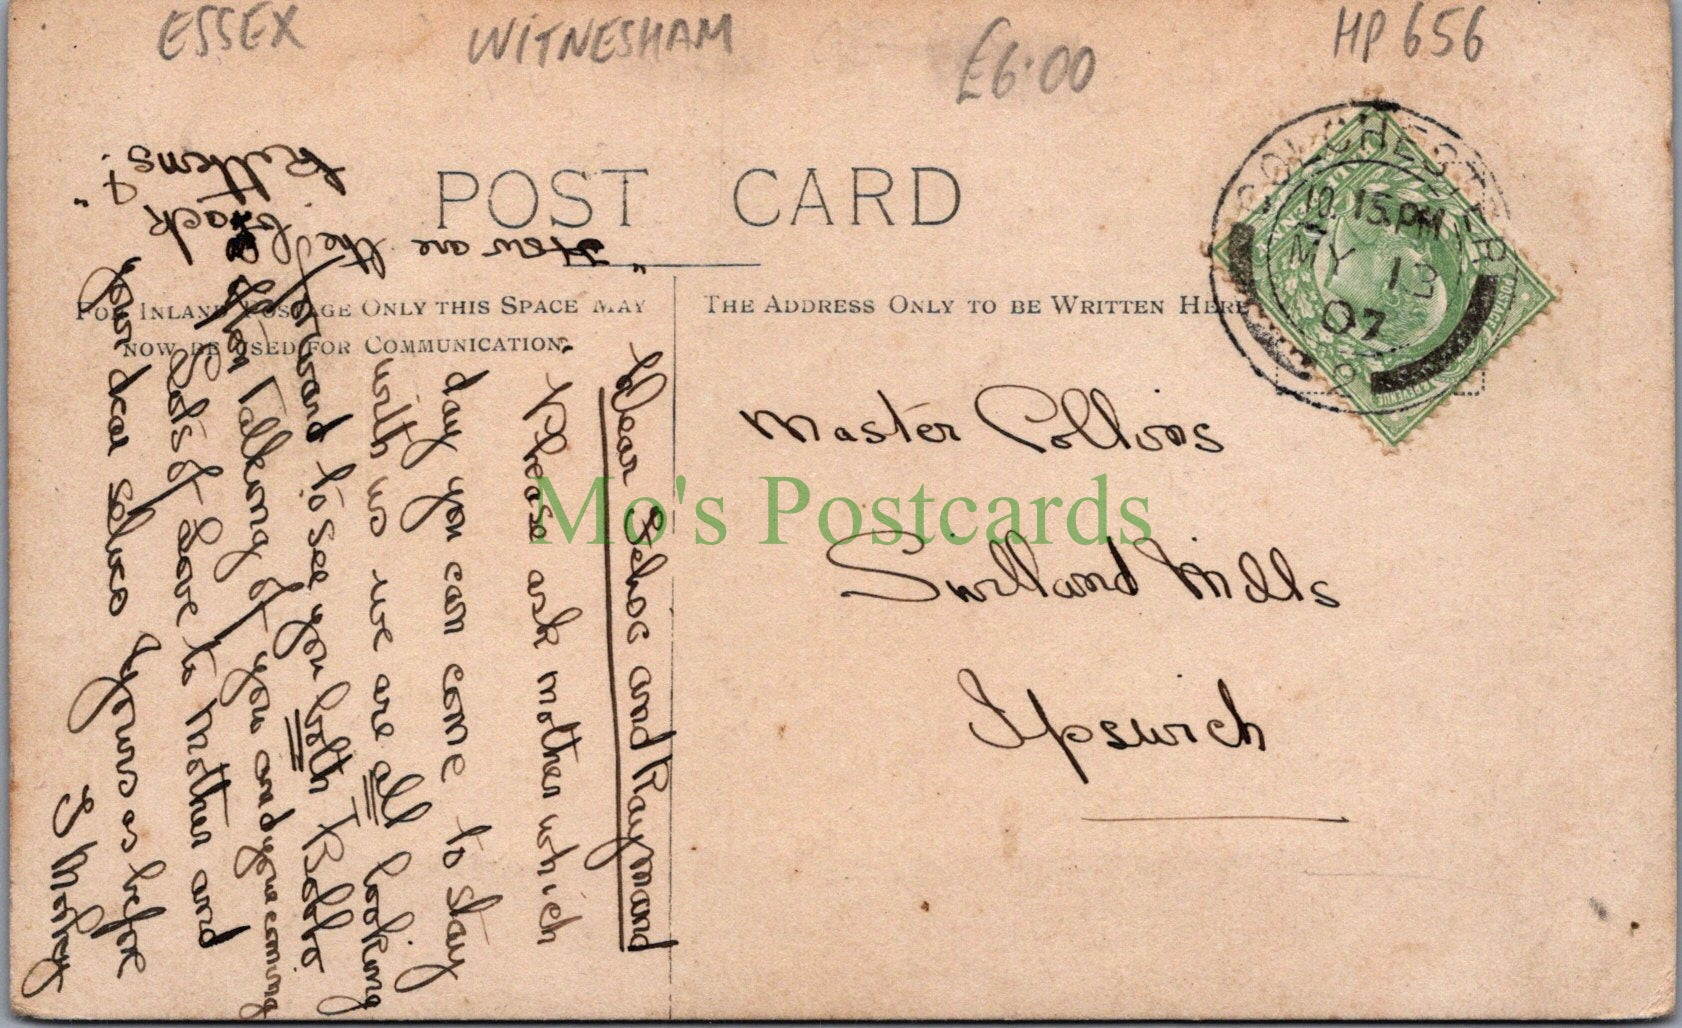 ESSEX WITNESHAM £6.00 HP 656
POST CARD
FOR INLAND POSTAGE ONLY THIS SPACE MAY
NOW BE USED FOR COMMUNICATION.
THE ADDRESS ONLY TO BE WRITTEN HERE
COLCHESTER
10.15 PM
MY 13
07
POSTAGE
REVENUE
Master Collins
Swilland Mills
Ipswich
Mo's Postcards
Dear and Raymand
Please ask mother which
day you can come to stay
with us we are all looking
forward to see you both Bobbo
Talking of you and your coming
Lots of Love to Mother and
your dear selves yours as before
"How are the
black
kittens?"